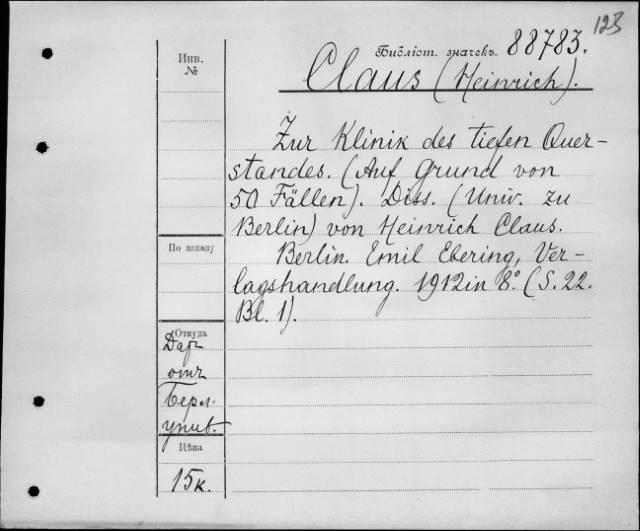 123
Инв.
№
Библіот. значекъ. 88783.
Claus (Heinrich).
Zur Klinik des tiefen Quer-
standes. (Auf Grund von
50 Fällen). Diss. (Univ. zu
Berlin) von Heinrich Claus.
Berlin. Emil Ebering, Ver-
lagshandlung. 1912 in 8.° (S. 22.
Bl. 1).
По заказу
Откуда
Дар
отъ
Берл.
унив.
Цѣна
15 к.